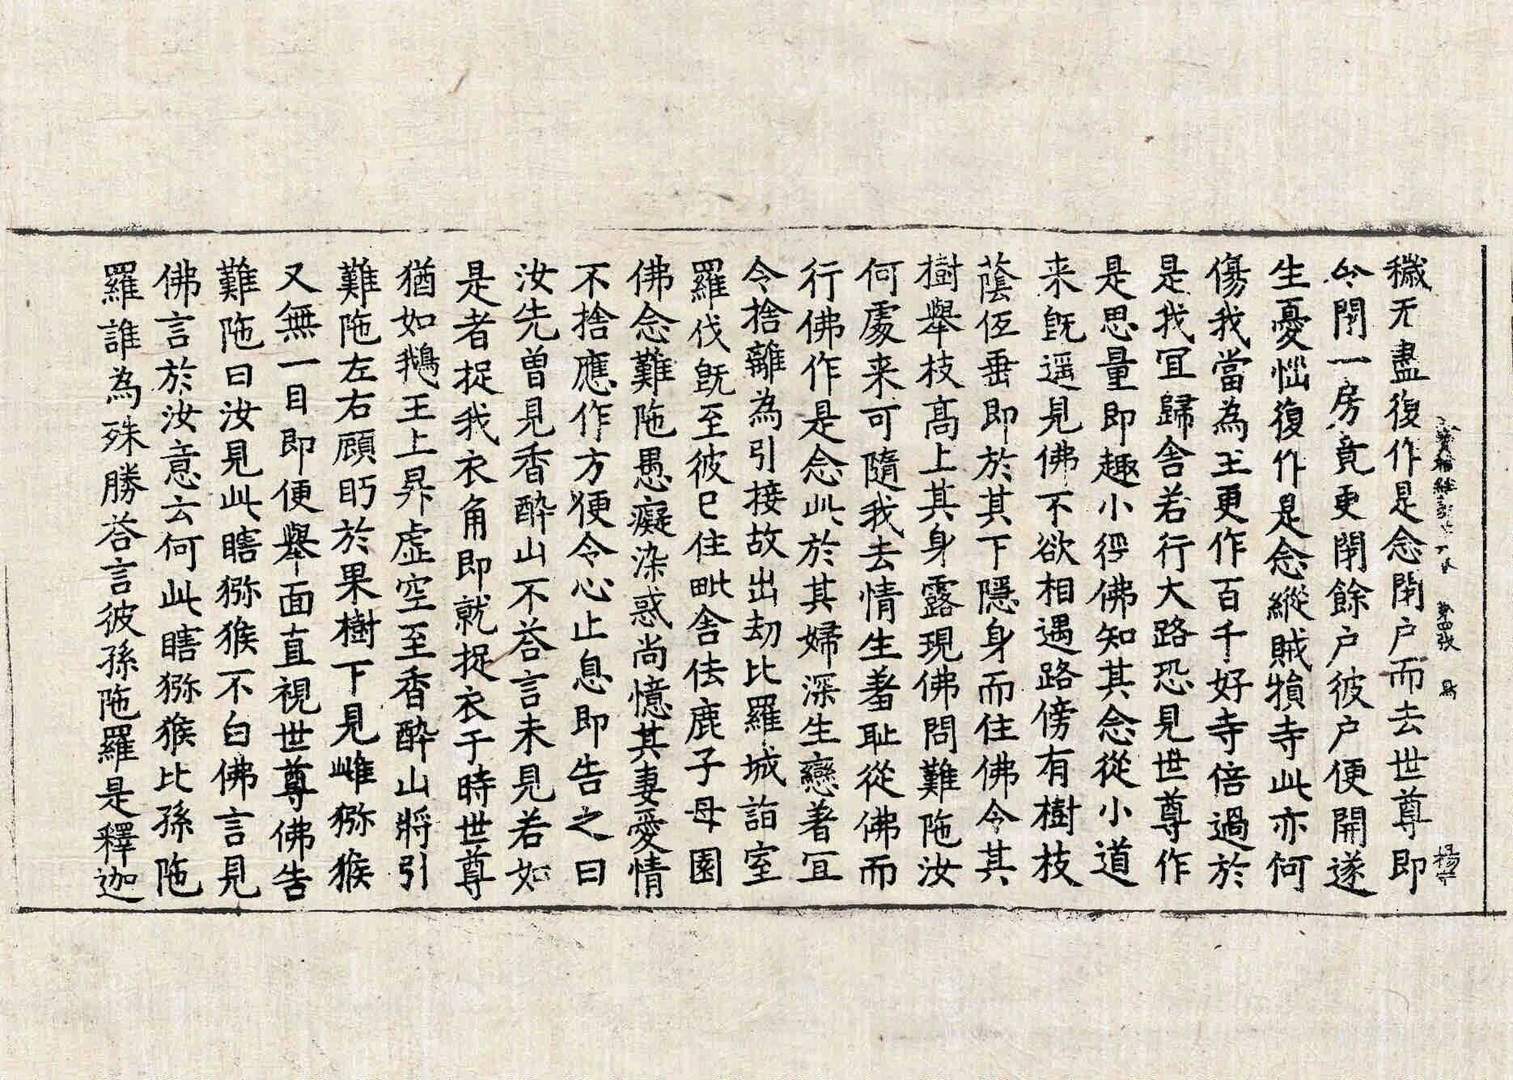 穢无盡復作是念閇户而去世尊即
令閇一房竟更閇餘户彼户便開遂
生憂惱復作是念縱賊損寺此亦何
傷我當為王更作百千好寺倍過於
是我冝歸舍若行大路恐見世尊作
是思量即趣小徑佛知其念從小道
来旣遥見佛不欲相遇路傍有樹枝
蔭仾垂即於其下隱身而住佛令其
樹舉枝髙上其身露現佛問難陁汝
何處来可隨我去情生羞耻從佛而
行佛作是念此於其婦深生戀著冝
令捨離為引接故出劫比羅城詣室
羅伐旣至彼已住毗舍佉鹿子母園
佛念難陁愚癡染惑尚憶其妻愛情
不捨應作方便令心止息即告之曰
汝先曽見香醉山不荅言未見若如
是者捉我衣角即就捉衣于時世尊
猶如鵝王上昇虛空至香醉山將引
難陁左右顧眄於果樹下見雌獼猴
又無一目即便舉面直視世尊佛告
難陁曰汝見此瞎獼猴不白佛言見
佛言於汝意云何此瞎獼猴比孫陁
羅誰為殊勝荅言彼孫陁羅是釋迦
第四張